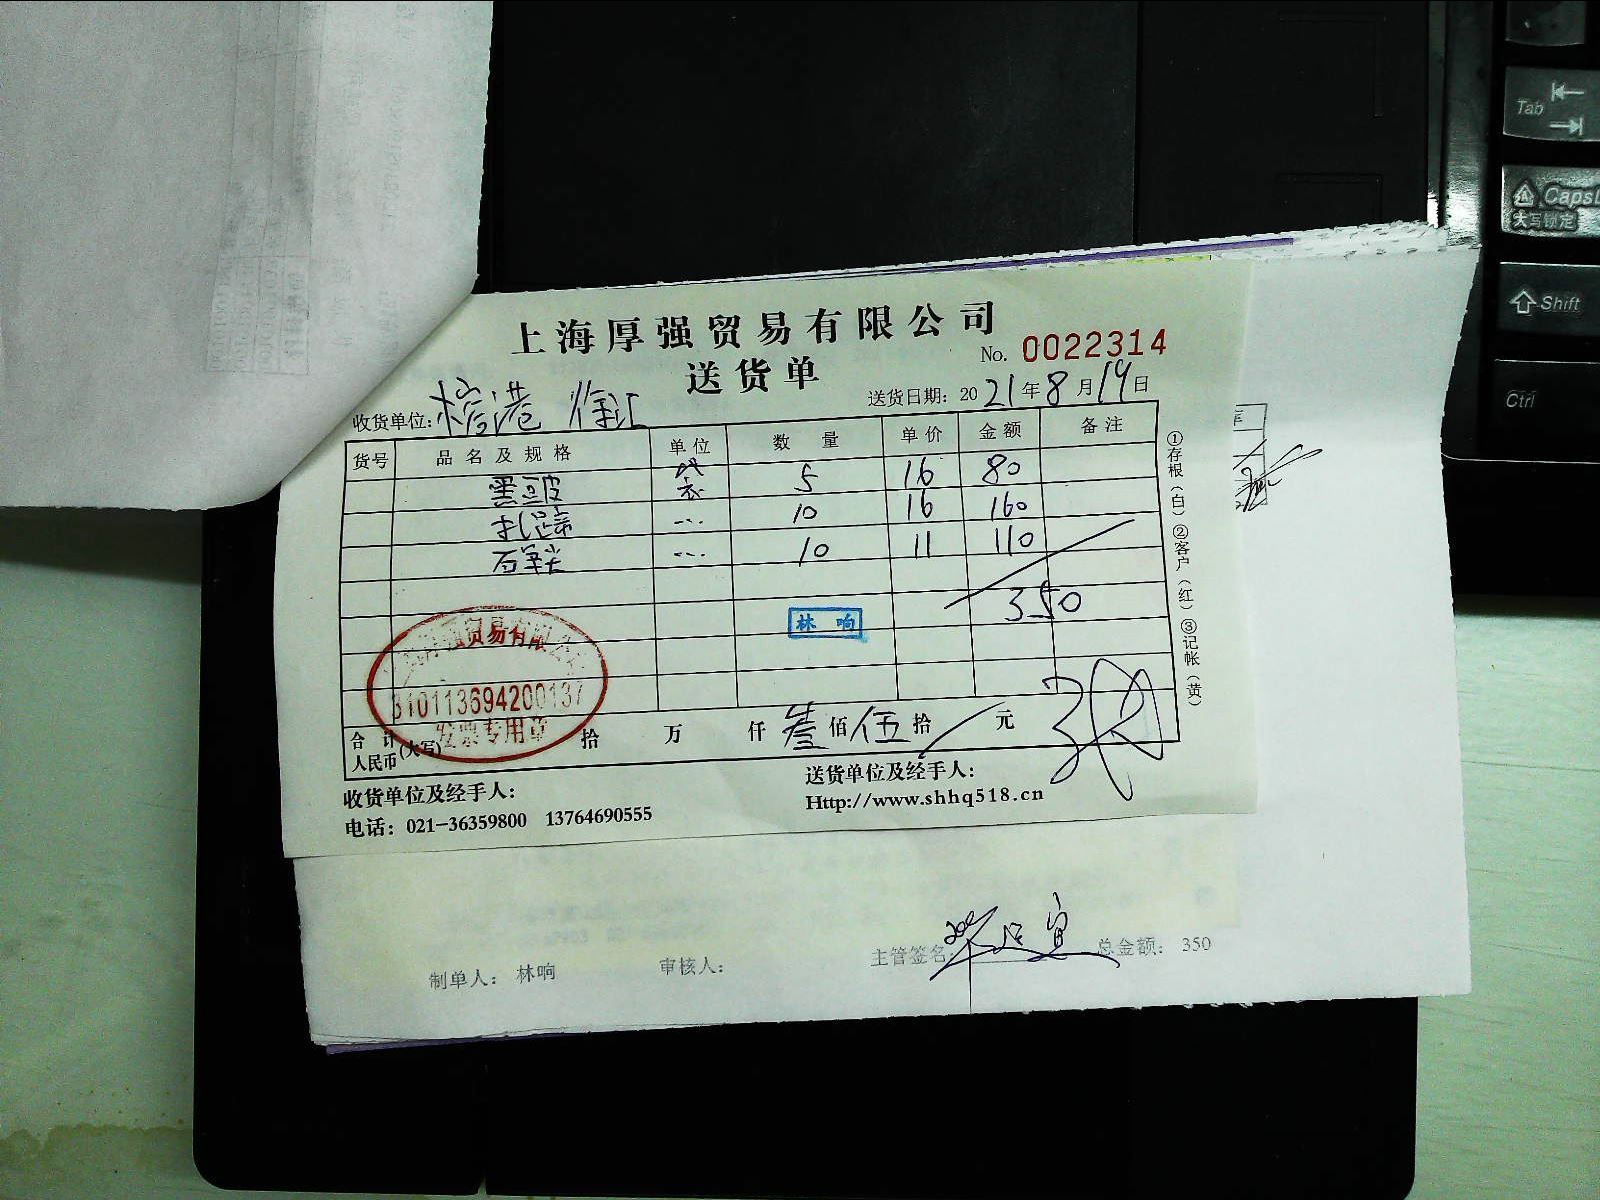 上海厚强贸易有限公司
No. 0022314
送货单
收货单位: 港 徐汇
送货日期: 2021年8月19日
货号 品名及规格 单位 数量 单价 金额 备注
黑豆皮 袋 5 16 80
10 16 160
石 10 11 110
350
林响
贸易有限公
310113694200137
发票专用章
合计
人民币(大写) 拾 万 仟 叁佰伍拾 元
收货单位及经手人:
送货单位及经手人:
电话: 021-36359800 13764690555
Http://www.shhq518.cn
①存根(白)②客户(红)③记帐(黄)
制单人: 林响 审核人: 主管签名 总金额: 350
Tab
CapsL
大写锁定
Shift
Ctrl